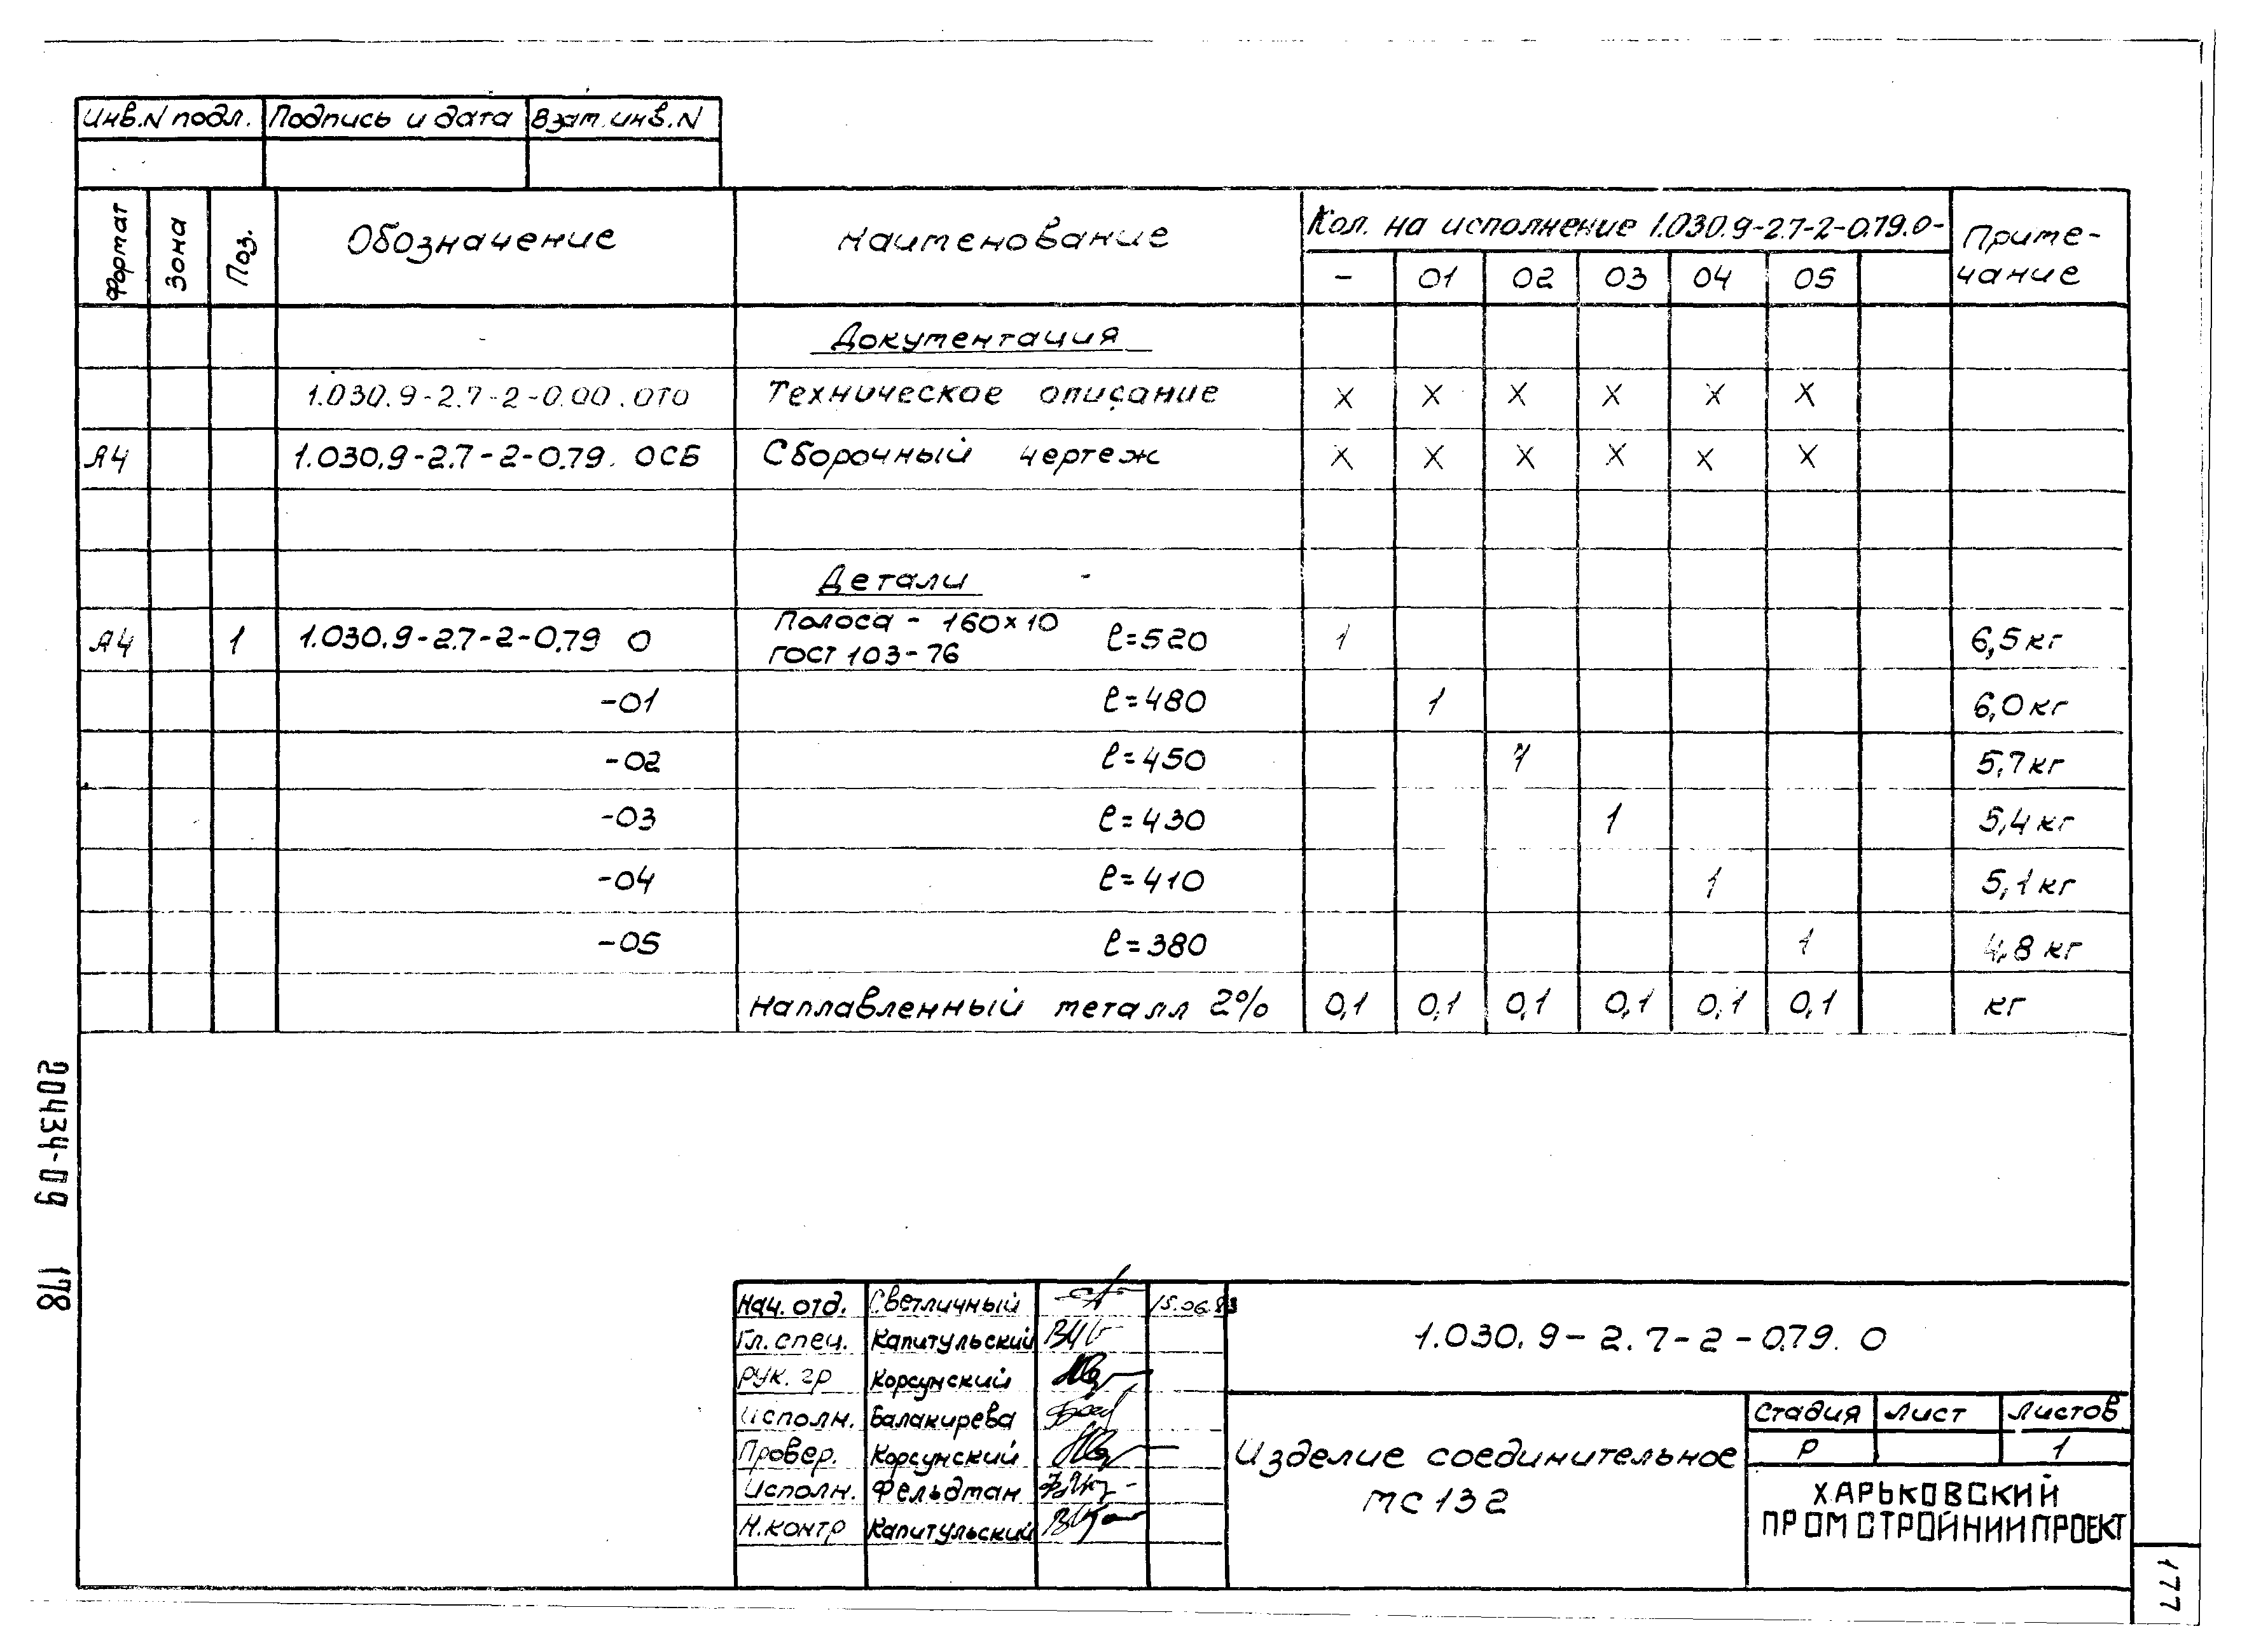 Инв.N подл. Подпись и дата Взам. инв. N
Формат Зона Поз. Обозначение Наименование Кол. на исполнение 1.030.9-2.7-2-0.79.0- Приме-
чание
- 01 02 03 04 05
Документация
1.030.9-2.7-2-0.00.0ТО Техническое описание X X X X X X
А4 1.030.9-2.7-2-0.79. 0СБ Сборочный чертеж X X X X X X
Детали
А4 1 1.030.9-2.7-2-0.79 0 Полоса - 160х10 ℓ=520 1 6,5 кг
ГОСТ 103-76
-01 ℓ=480 1 6,0 кг
-02 ℓ=450 1 5,7 кг
-03 ℓ=430 1 5,4 кг
-04 ℓ=410 1 5,1 кг
-05 ℓ=380 1 4,8 кг
Наплавленный металл 2% 0,1 0,1 0,1 0,1 0,1 0,1 кг
20434-09 178
Нач. отд. Светличный 15.06.83
Гл. спец. Капитульский
Рук. гр Корсунский
Исполн. Балакирева
Провер. Корсунский
Исполн. Фельдман
Н.контр Капитульский
1.030.9-2.7-2-0.79. 0
Изделие соединительное
МС 132
Стадия Лист Листов
Р 1
ХАРЬКОВСКИЙ
ПРОМСТРОЙНИИПРОЕКТ
177